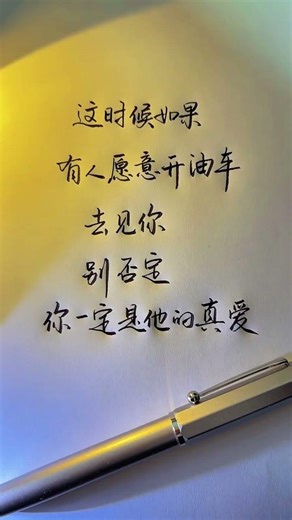 这时候如果
有人愿意开油车
去见你
别否定
你一定是他的真爱